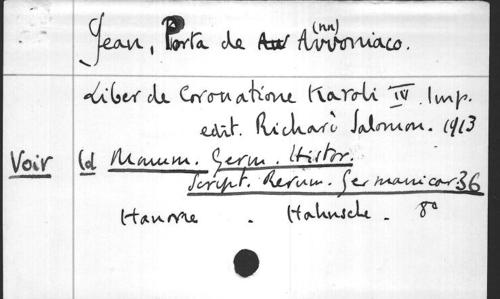 Jean, Porta de Avvoniaco. (nn)
Liber de Coronatione Karoli IV Imp.
edit. Richard Salomon. 1913
Voir Monum. Germ. Histor.
Script. Rerum. Germanicar 36
Hanovre. Hahnsche. 8°